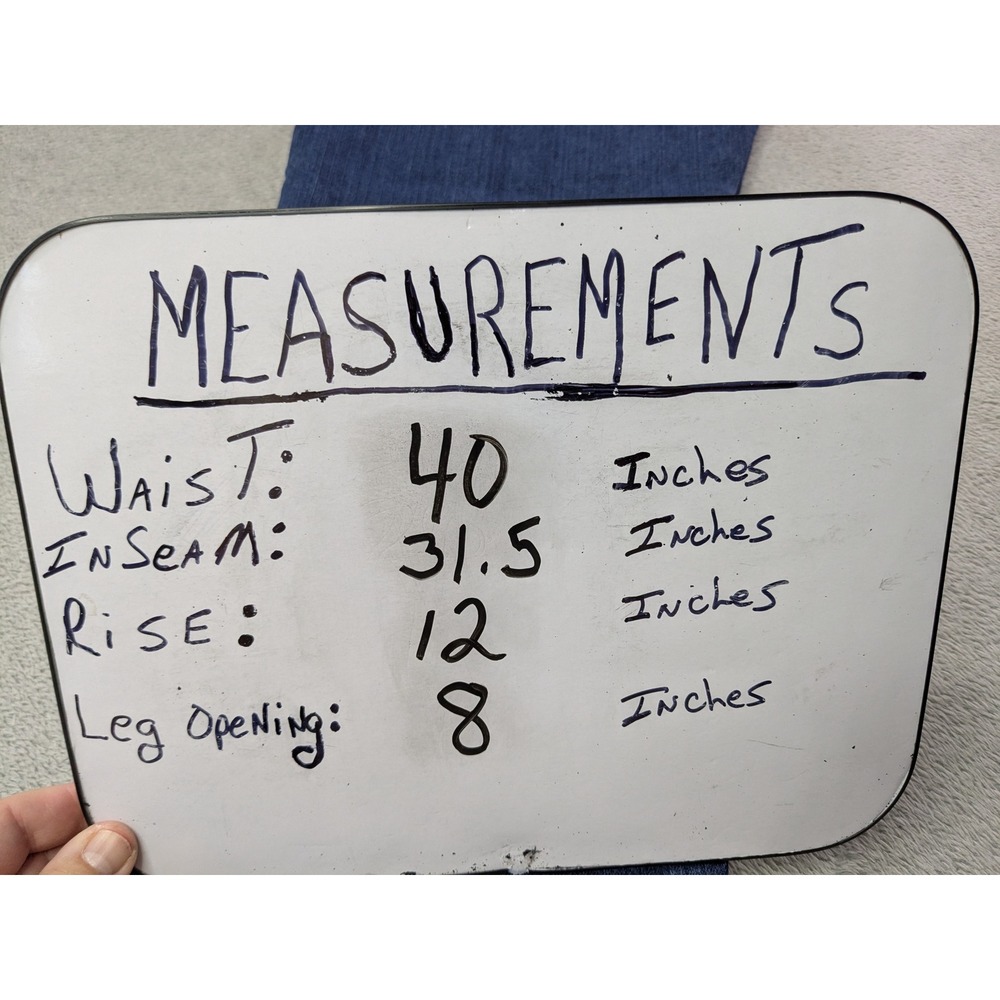 MEASUREMENTS
WAIST: 40 Inches
INSEAM: 31.5 Inches
RISE: 12 Inches
Leg Opening: 8 Inches